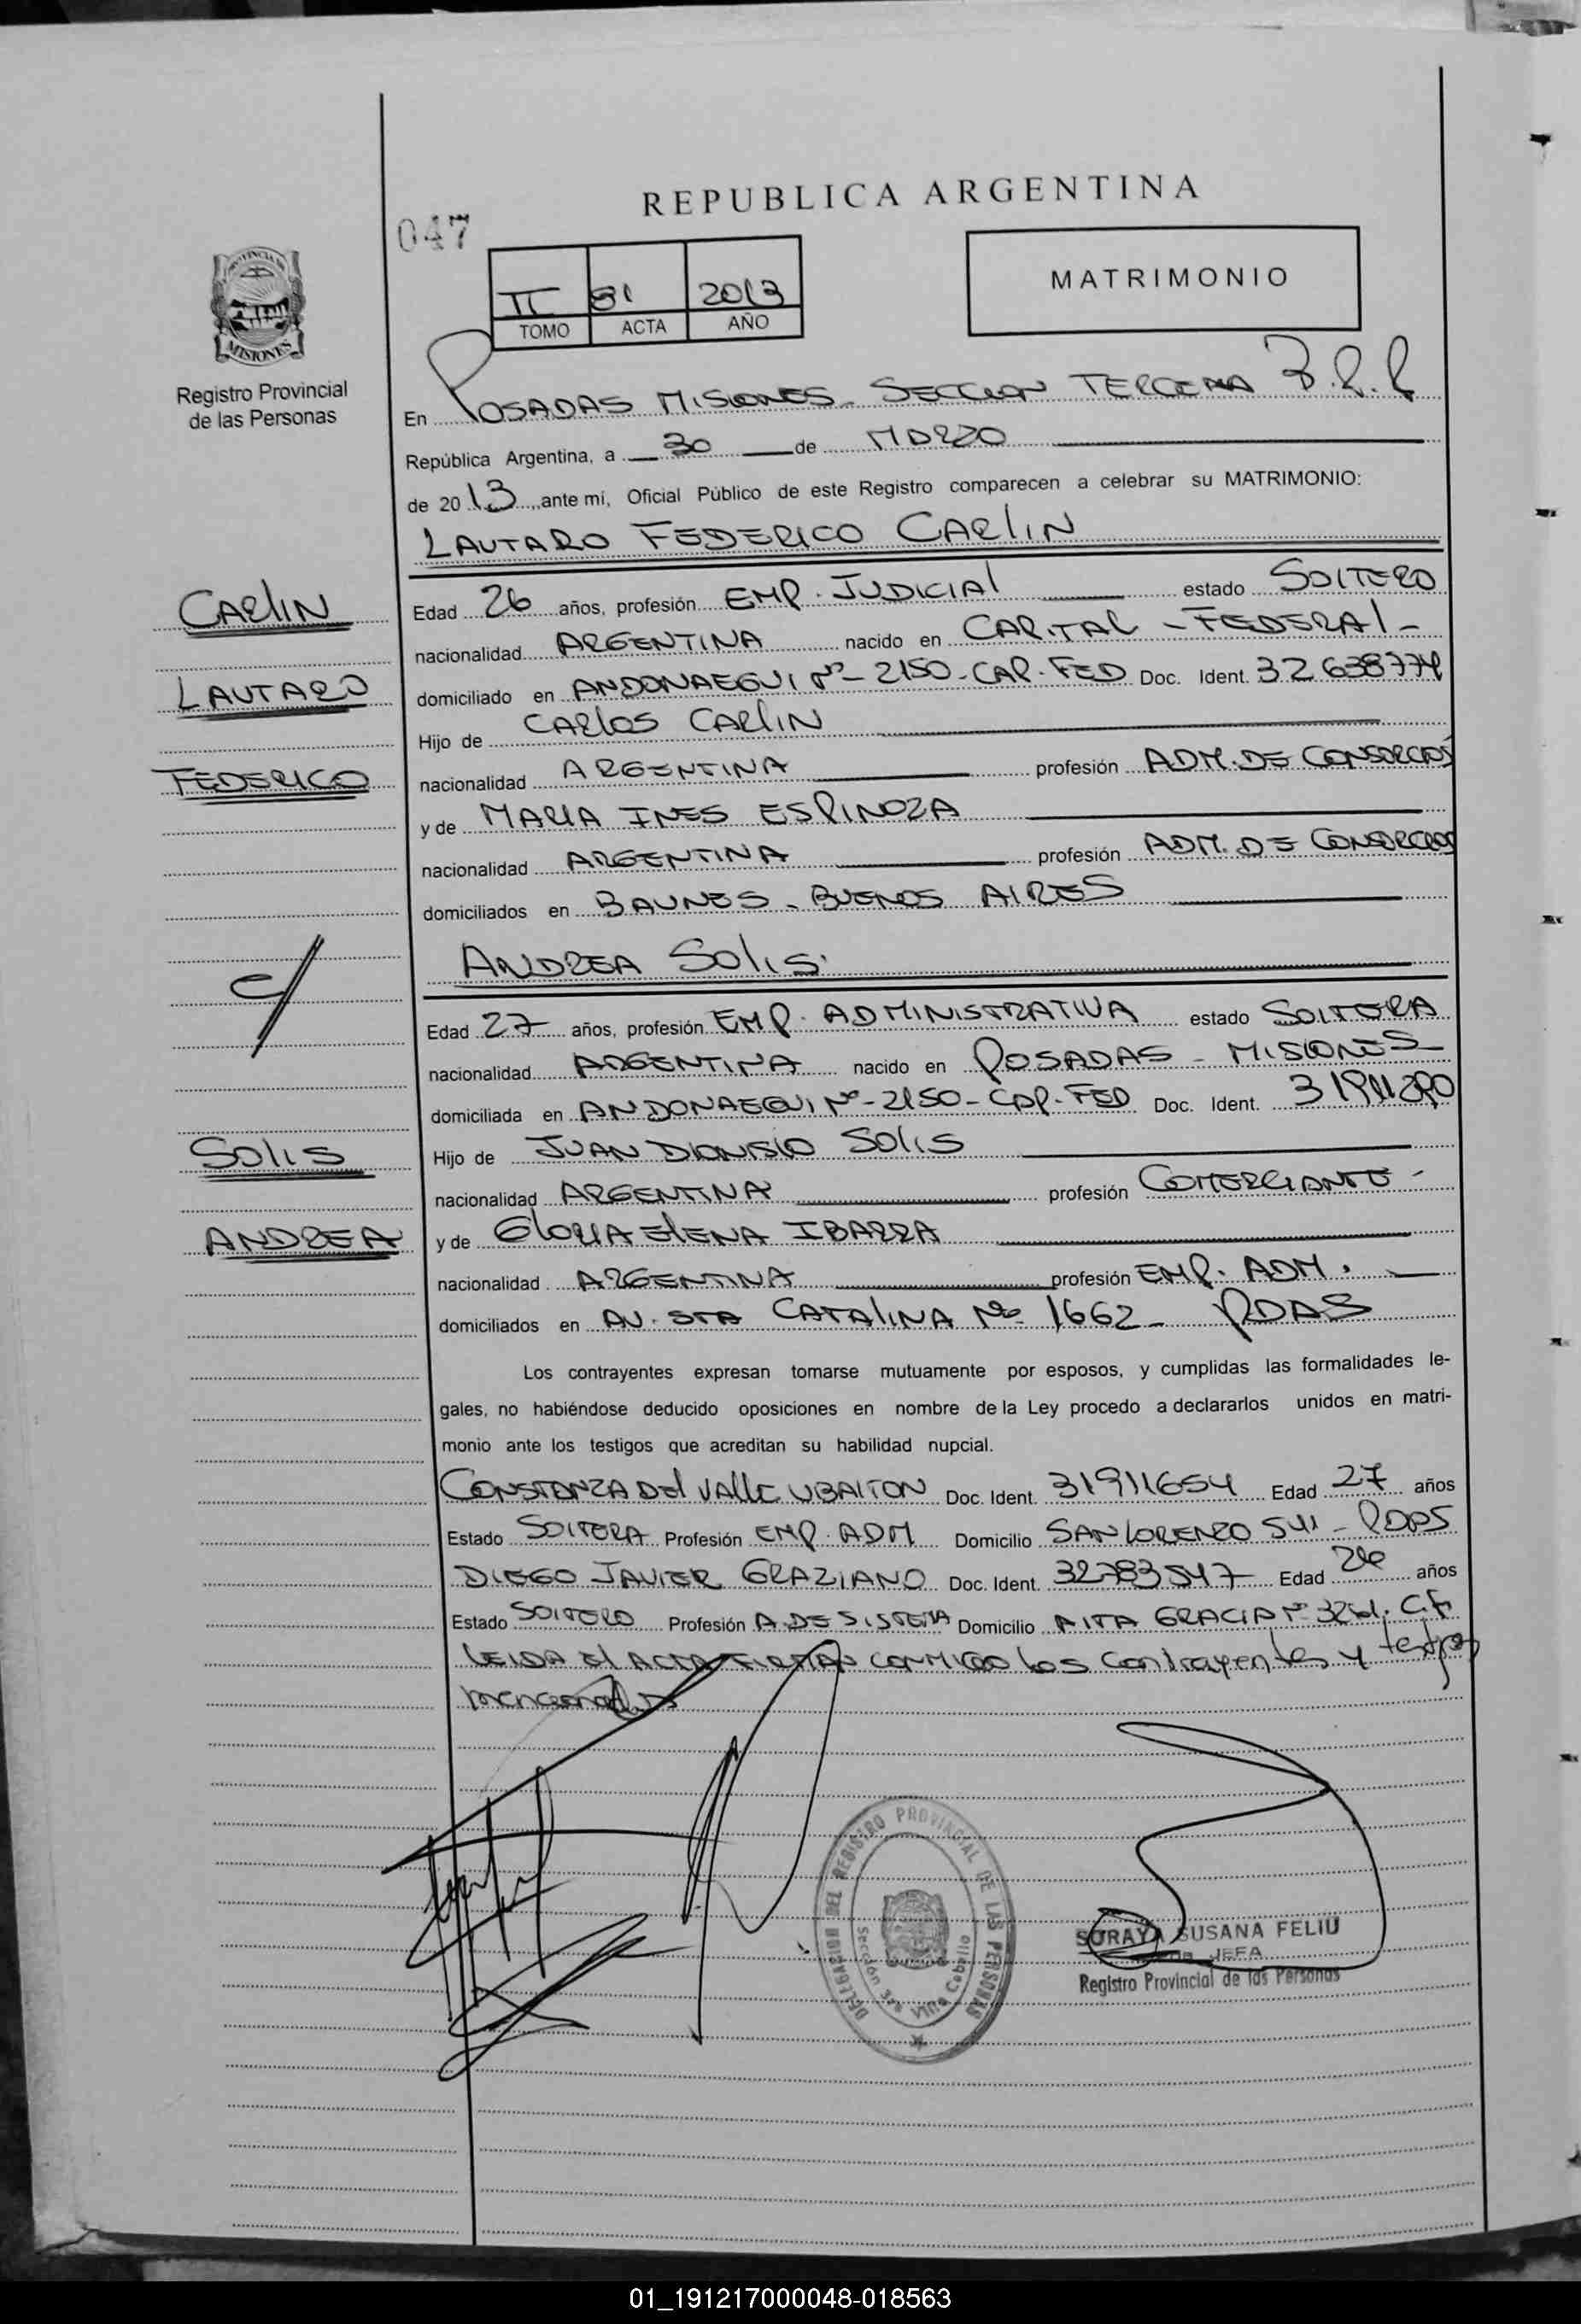 REPUBLICA ARGENTINA
047
PROVINCIA DE
MISIONES
Registro Provincial
de las Personas
II 81 2013
TOMO ACTA AÑO
MATRIMONIO
En POSADAS MISIONES - SECCION TERCERA
República Argentina, a 30 de MARZO
de 2013, ante mí, Oficial Público de este Registro comparecen a celebrar su MATRIMONIO:
LAUTARO FEDERICO CARLIN
CARLIN
LAUTARO
FEDERICO
Edad 26 años, profesión EMP. JUDICIAL estado SOLTERO
nacionalidad ARGENTINA nacido en CAPITAL - FEDERAL -
domiciliado en ANDONAEGUI Nº - 2150 - CAP. FED Doc. Ident. 32.638774
Hijo de CARLOS CARLIN
nacionalidad ARGENTINA profesión ADM. DE CONSORCIOS
y de MARIA INES ESPINOZA
nacionalidad ARGENTINA profesión ADM. DE CONSORCIOS
domiciliados en BAUNES - BUENOS AIRES
c/
ANDREA SOLIS.
Edad 27 años, profesión EMP. ADMINISTRATIVA estado SOLTERA
nacionalidad ARGENTINA nacido en POSADAS - MISIONES
domiciliada en ANDONAEGUI Nº - 2150 - CAP. FED Doc. Ident.
SOLIS
ANDREA
Hijo de JUAN DIONISIO SOLIS
nacionalidad ARGENTINA profesión COMERCIANTE -
y de GLORIA ELENA IBARRA
nacionalidad ARGENTINA profesión EMP. ADM.
domiciliados en AV. STA CATALINA Nº 1662 - PDAS
Los contrayentes expresan tomarse mutuamente por esposos, y cumplidas las formalidades le-
gales, no habiéndose deducido oposiciones en nombre de la Ley procedo a declararlos unidos en matri-
monio ante los testigos que acreditan su habilidad nupcial.
CONSTANZA DEL VALLE UBALTON Doc. Ident. 31911654 Edad 27 años
Estado SOLTERA Profesión EMP. ADM Domicilio SAN LORENZO 541 - PDAS
DIEGO JAVIER GRAZIANO Doc. Ident. 32783547 Edad 26 años
Estado SOLTERO Profesión A. DE SISTEMA Domicilio ALTA GRACIA Nº C.F.
LEIDA EL ACTA FIRMAN CONMIGO los contrayentes y testigos
mencionados
DELEGACION DEL REGISTRO PROVINCIAL DE LAS PERSONAS
Sección 3ra Villa Cabello
SORAYA SUSANA FELIU
JEFA
Registro Provincial de las Personas
01_191217000048-018563